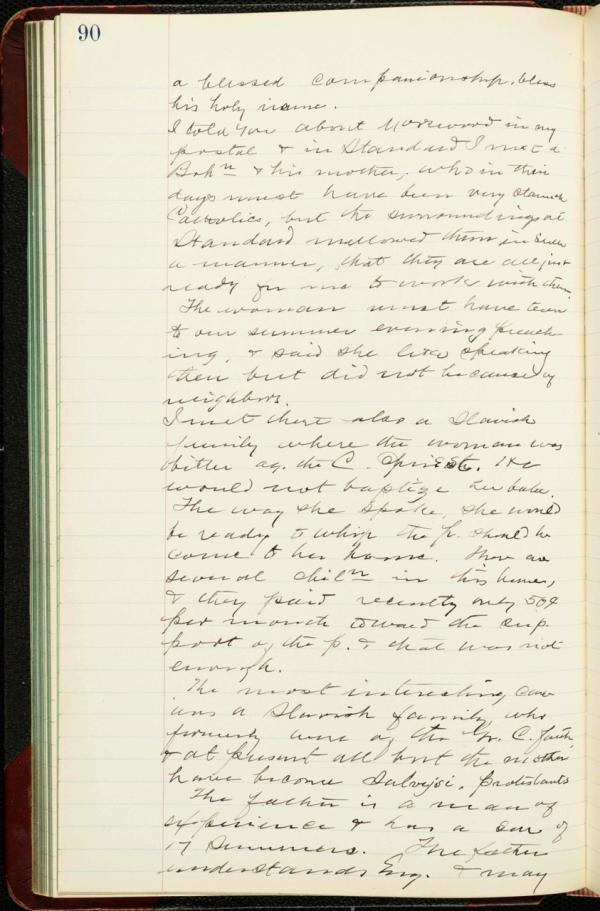 90
a blessed companionship, bless
his holy name.
I told you about Morewood in my
postal & in Standard I met a
Boh<sup>n</sup> & his mother, who in their
days must have been very stanch
Catholics, but the surroundings at
Standard mellowed them in such
a manner, that they are all just
ready for me to work with them.
The woman must have been
to our summer evening preach-
ing, & said she liked speaking
then but did not because of
neighbors.
I met there also a Slavish
family where the woman was
bitter ag. the C. priest. He
would not baptize her babe.
The way she spoke, she would
be ready to whip the p. should he
come to her home. There are
several chil<sup>n</sup> in this home,
& they paid recently only 50¢
per month toward the sup-
port of the p. & that was not
enough.
The most interesting case
was a Slavish family, who
formerly were of the Gr. C. faith
& at present all but the mother
have become protestants
The father is a man of
experience & has a son of
17 summers. The father
understands Eng. & may